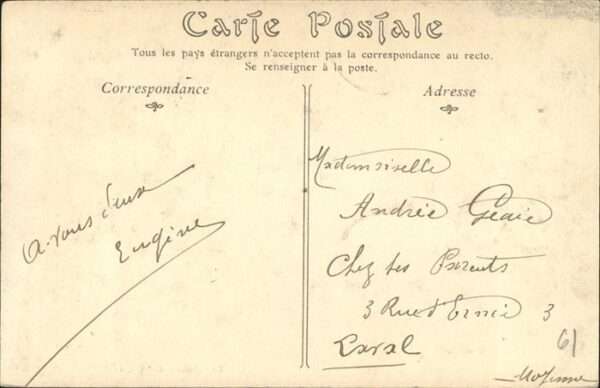 Carte Postale
Tous les pays étrangers n'acceptent pas la correspondance au recto.
Se renseigner à la poste.
Correspondance
Adresse
A-vous d'eux
Eugène
Mademoiselle
Andrée
Chez ses Parents
3 Rue d'Ernée 3
Laval
Mayenne
61